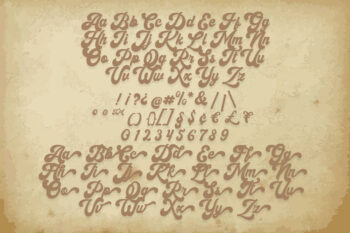 Aa Bb Cc Dd Ee Ff Gg
Hh Ii Jj Kk Ll Mm Nn
Oo Pp Qq Rr Ss Tt Uu
Vv Ww Xx Yy Zz
0 1 2 3 4 5 6 7 8 9
Aa Bb Cc Dd Ee Ff Gg
Hh Ii Jj Kk Ll Mm Nn
Oo Pp Qq Rr Ss Tt Uu
Vv Ww Xx Yy Zz